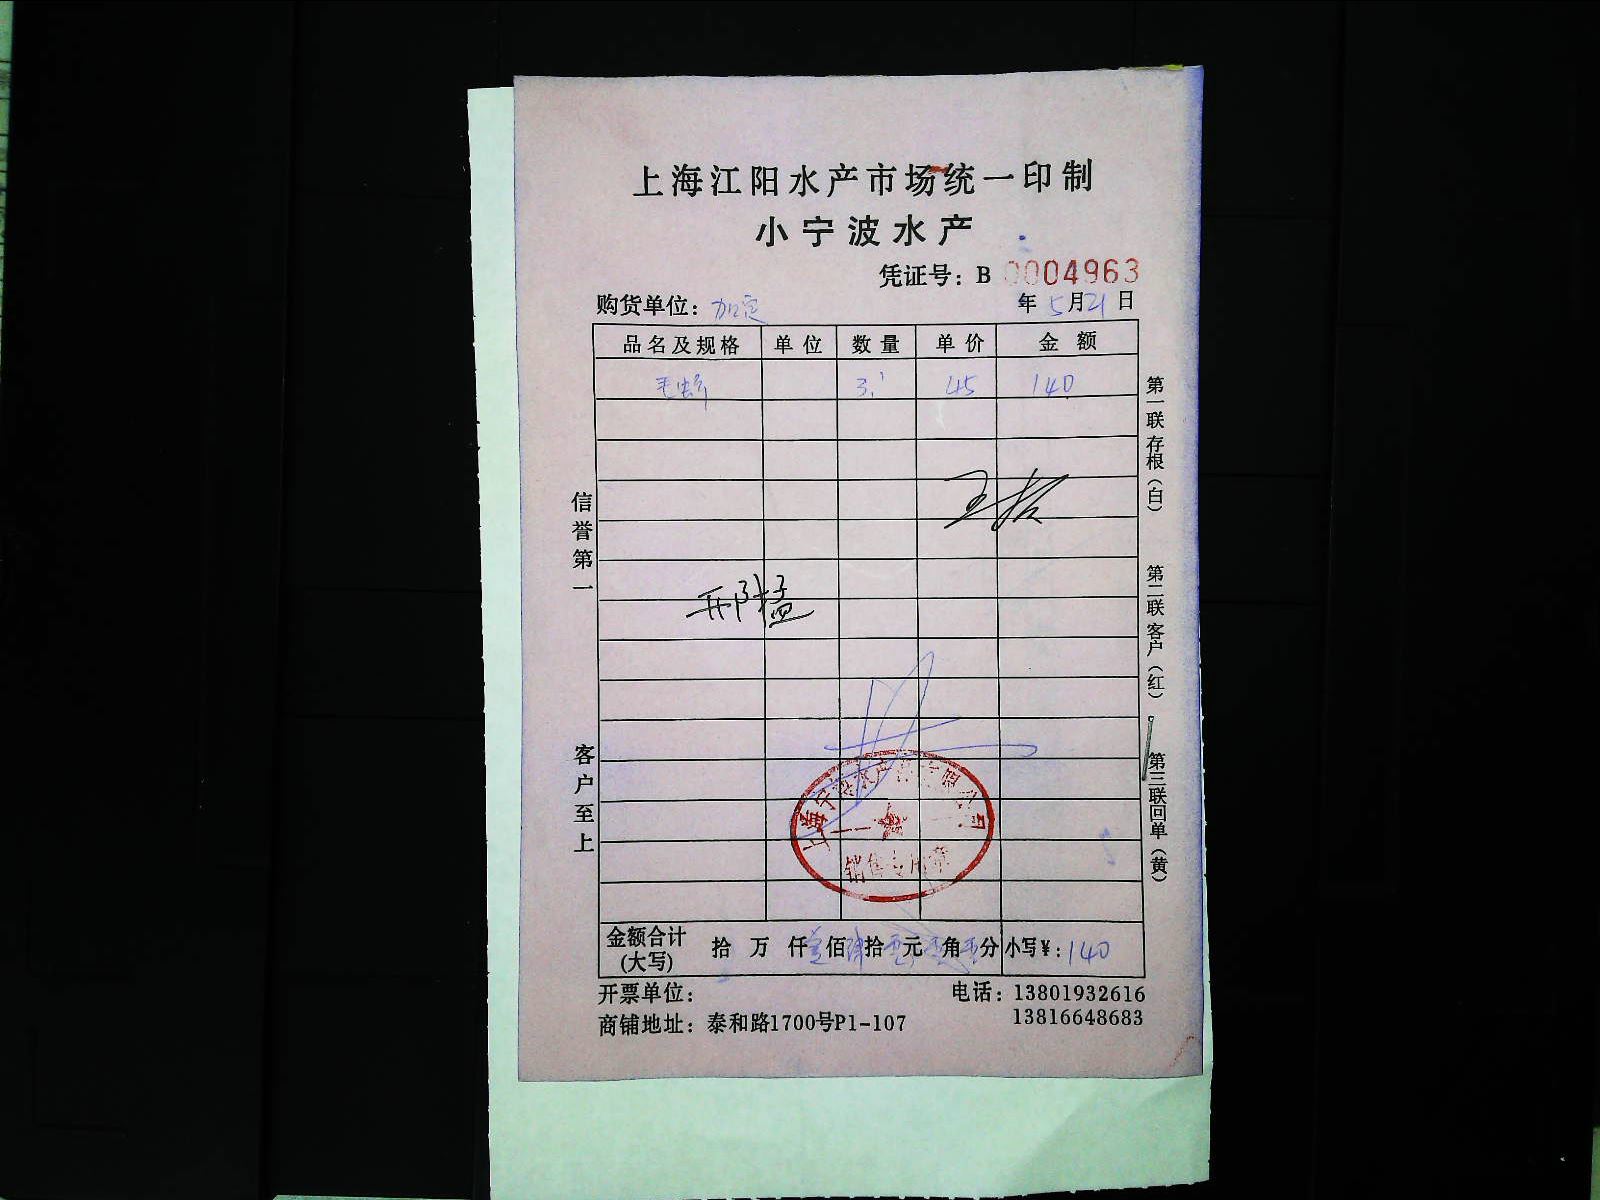 上海江阳水产市场统一印制
小宁波水产
凭证号：B 0004963
购货单位：加定 年5月21日
品名及规格 单位 数量 单价 金额
毛蚶 3.1 45 140
王
邢猛
信誉第一
客户至上
第一联存根（白）
第二联客户（红）
第三联回单（黄）
上海宁波水产有限公司
销售专用章
金额合计(大写) 拾 万 仟壹佰肆拾零元零角零分 小写¥：140
开票单位： 电话：13801932616
商铺地址：泰和路1700号P1-107 13816648683